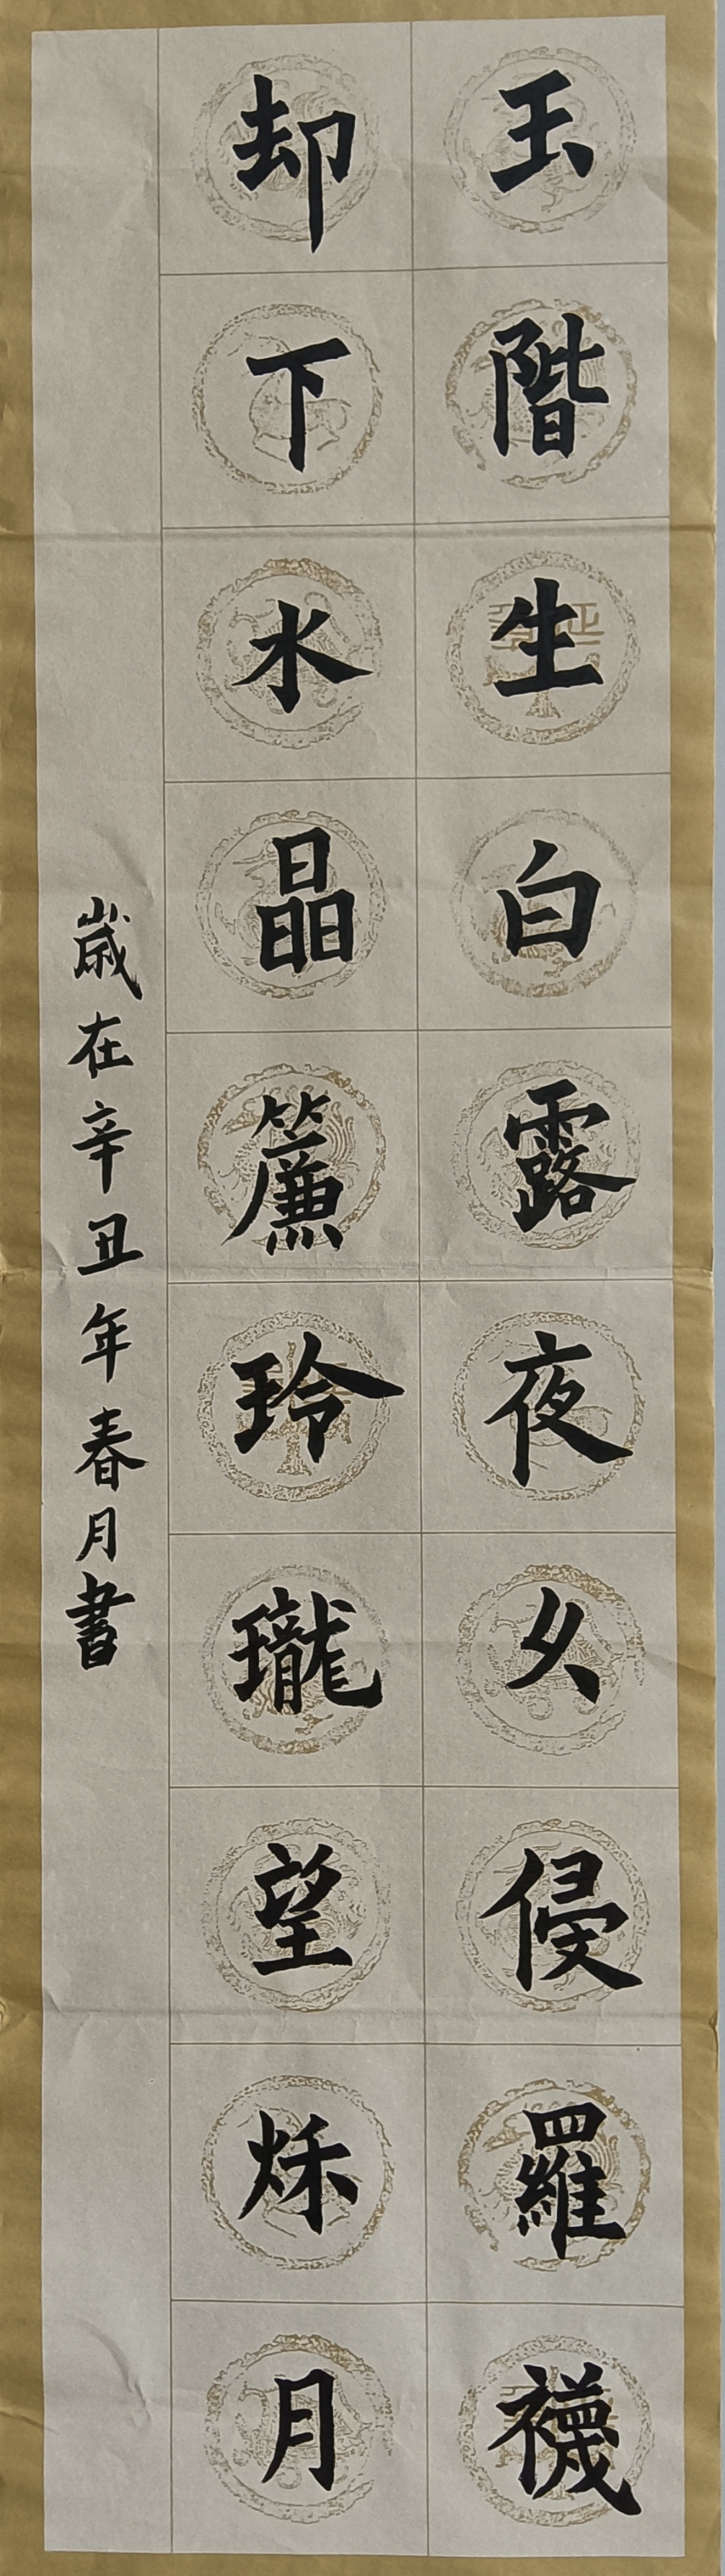 玉階生白露夜久侵羅襪
却下水晶簾玲瓏望烁月
歲在辛丑年春月書